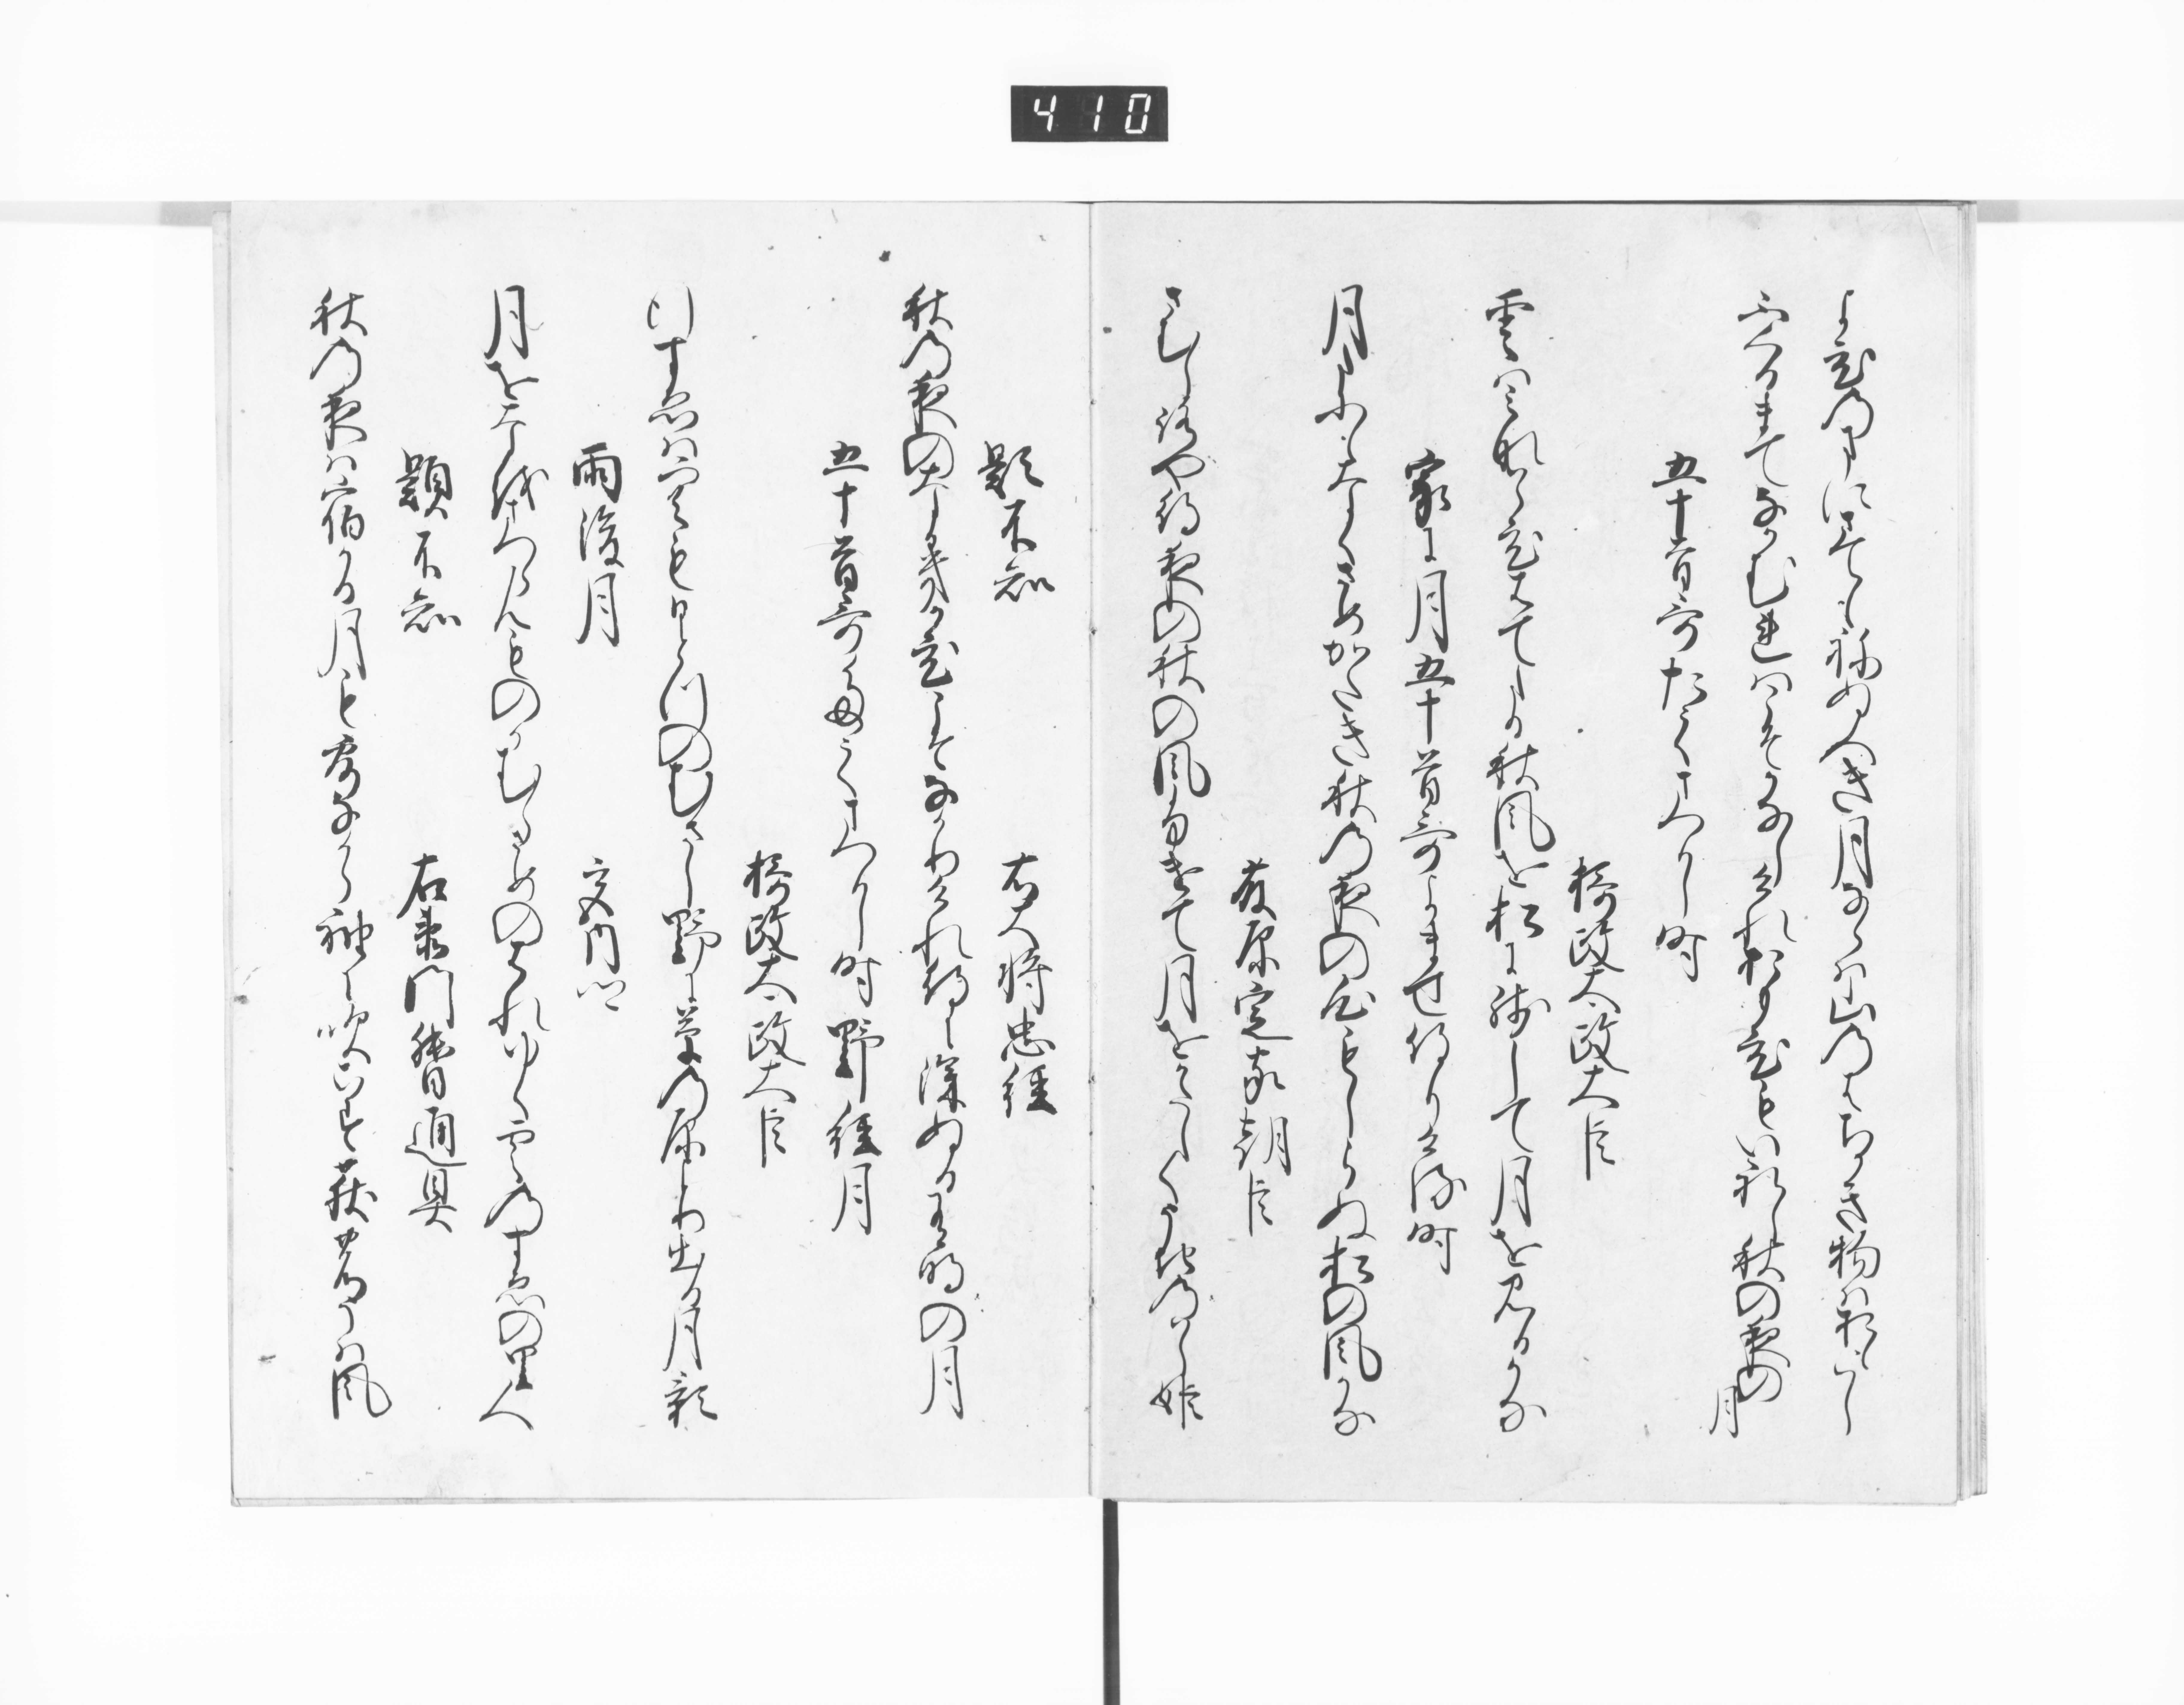 410
よもすからひとり
ふくるまてなかむれはこそかなしけれおもひもいれし秋の夜の
月
五十首哥たてまつりし時
摂政太政大臣
雲はみなはらひはてたる秋風を松に残して月を見るかな
家に月五十首哥よませ侍りける時
月たにもなくさめかたき秋の夜の心もしらぬ松の風かな
藤原定家朝臣
さむしろや待夜の秋の風ふけて月をかたしくうちのはし姫
題不知
右大将忠経
秋の夜のなかきかひこそなかりけれ待にふけぬる有明の月
五十首哥たてまつりし時野径月
摂政太政大臣
行すゑは空もひとつのむさし野に草の原より出る月影
雨後月
宮内卿
月をなを待らんものかむらさめのはれゆく雲のすゑの里人
題不知
右衛門督通具
秋の夜は宿かる月も露なから袖に吹こす荻のうは風